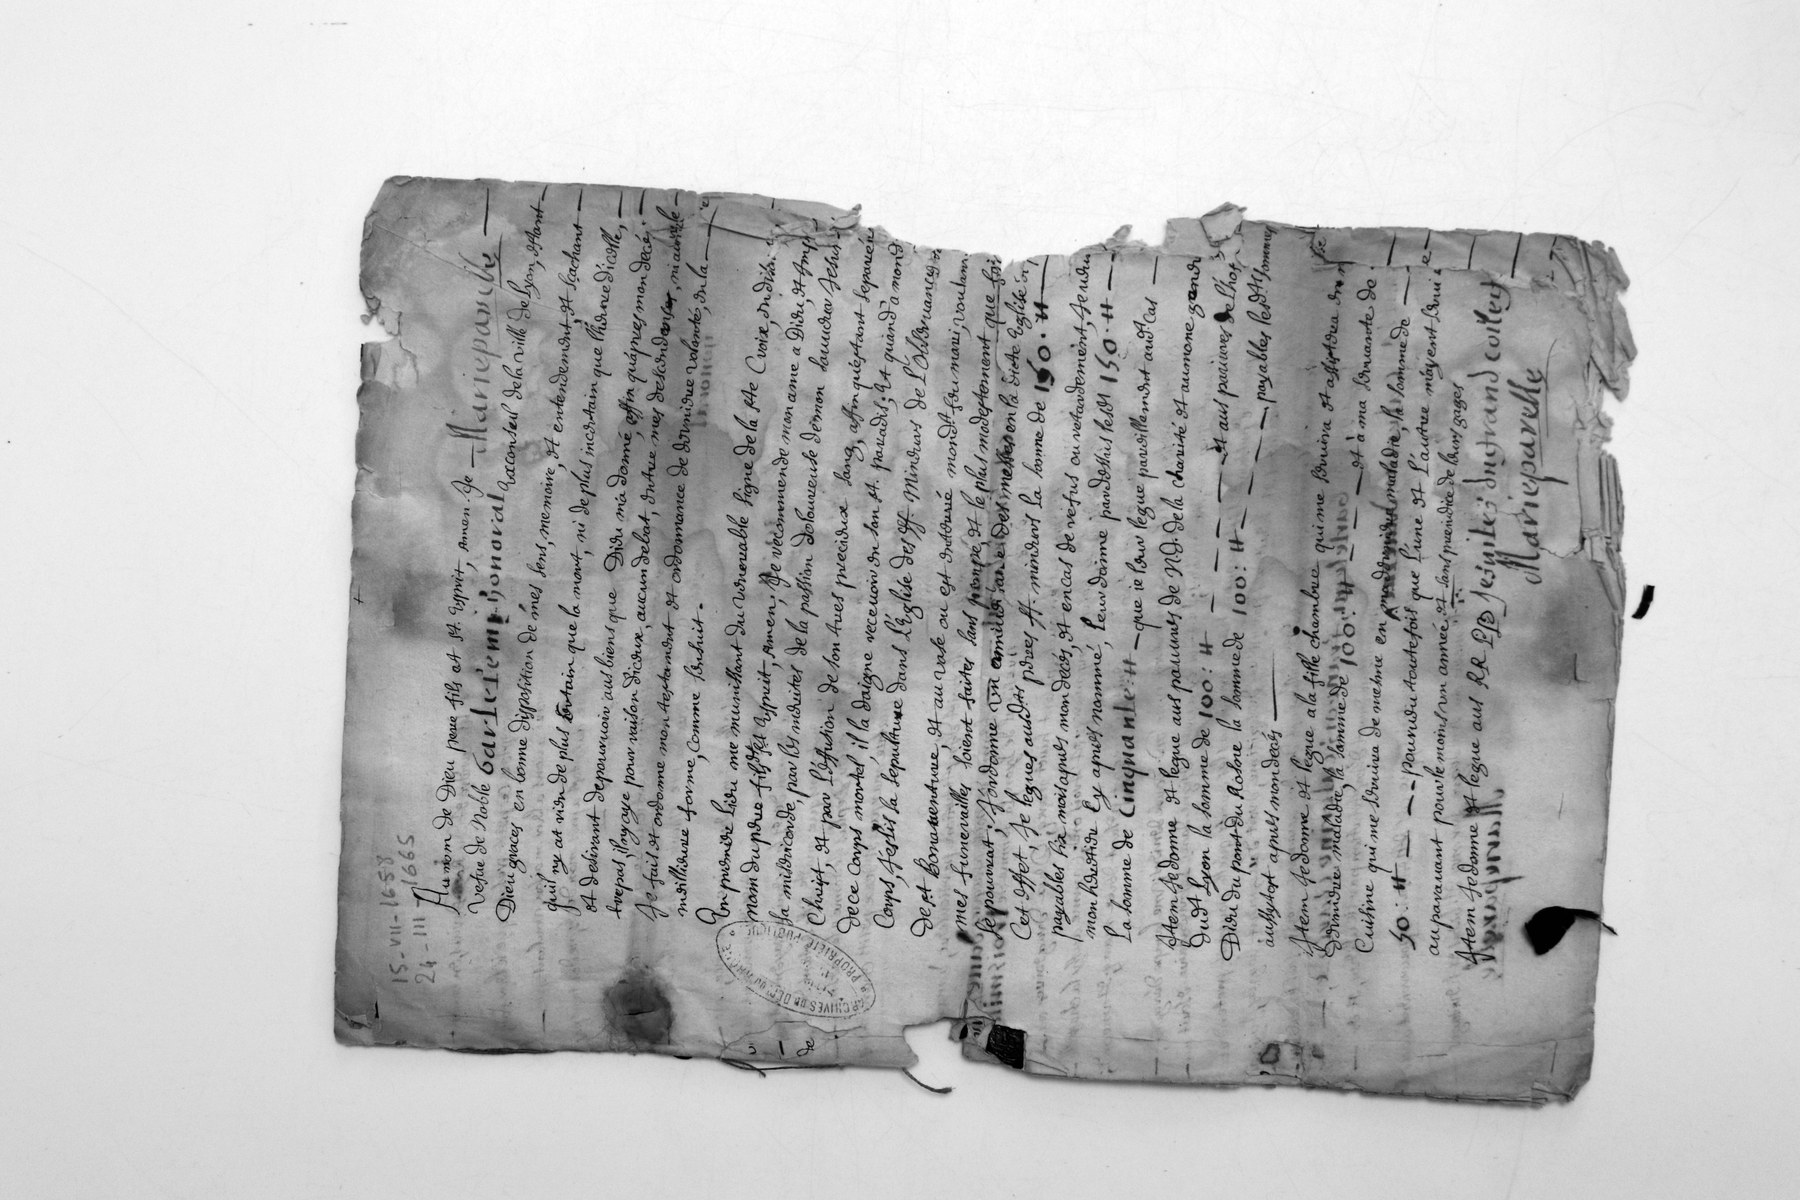 15-VII-1658
24-III 1665
Au nom de Dieu pere fils et st. Esprit, Amen. Je Marie panelle
Vefue de Noble barthelemi honorat Exconseul de la ville de Lyon, estant
Dieu graces en bonne disposition de mes sens, memoire, et entendement, et sachant
quil ny at rien de plus certain que la mort, ni de plus incertain que l'heure d'icelle,
et desirant de pourvoir aus biens que Dieu m'a donné, affin qu'apres mon decé
trepas, il ny aye pour raison d'iceux, aucun debat, entre mes descendans, ni autre
Je fais et ordonne mon testament et ordonnance de derniere volonté, en la
meillieure forme, comme sensuit.
En premier lieu me munissant du venerable signe de la ste Croix, en disant
nom du pere fils et st Esprit, Amen; Je recommende mon ame a Dieu, et Impl
sa misericorde, par les merites de la passion doloureuse de mon sauveur Jesus
Christ, et par l'effusion de son tres precieux sang, afin qu'estant separée
de ce corps mortel il la daigne recevoir en son st. paradis. Et quand a mond
Corps, J'eslis la sepulture dans l'Eglise des ff. Mineurs de L'Observance
de st Bonaventure, et au vase ou est enterré mondt feu mari, voulant
mes funerailles soient faites sans pompe, et le plus modestement que fai
se pourrat; J'ordonne un annuel de messes en la dicte Eglise
Cet effet, Je legues ausdits peres ff. mineurs la somme de 150.#
payables six mois apres mon decés, et en cas de refus ou retardement, Je veux
mon heretier cy apres nommé, leur donne par dessus lesdt 150.#
la somme de Cinquante:# que je leur legue pareillement audt cas
Item Je donne et legue aus pauvres de ND. de la charité et aumone gene
dudt Lyon la somme de 100:# et aus pauvres de l'hos
Dieu du pont du Rosne la somme de 100:# payables lesdt sommes
aussytost apres mon decés
Item Je donne et legue a la fille chambre qui me servira et assistera en
derniere maladie, la somme de 100:# et a ma servante de
Cuisine qui me servira de mesme en maladie, la somme de
50:# pourveu toutefois que l'une et l'autre m'ayent servi
auparavant pour le moins un année, et sans preiudice de leurs gages
Item Je donne et legue aus RR PP Jesuites du grand college
Marie panelle
ARCHIVES DU DEPT DU RHONE
PROPRIÉTÉ PUBLIQUE
de